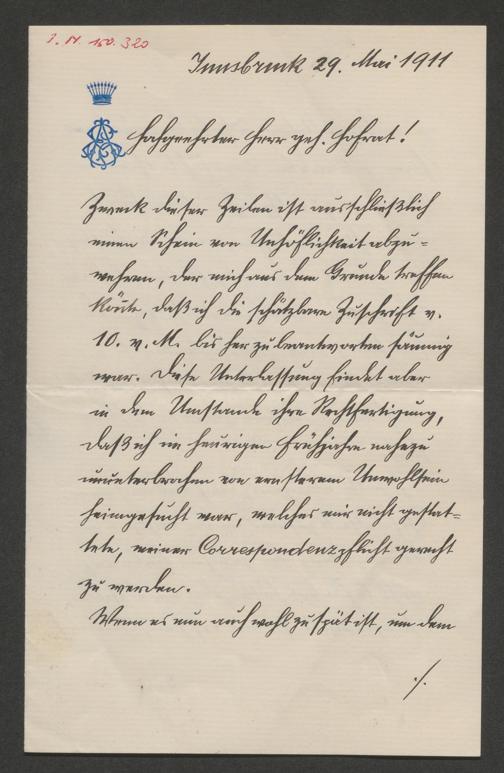 I. N. 150.320
Innsbruck 29. Mai 1911
Hochgeehrter Herr geh. Hofrat!
Zweck dieser Zeilen ist ausschließlich
einen Schein von Unhöflichkeit abzu=
wehren, der mich aus dem Grunde treffen
könte, daß ich die schätzbare Zuschrift v.
10. v. M. bisher zu beantworten säumig
war. Diese Unterlassung findet aber
in dem Umstande ihre Rechtfertigung,
daß ich im heurigen Frühjahre nahezu
ununterbrochen von ernsterem Unwohlsein
heimgesucht war, welches mir nicht gestat=
tete, meiner Correspondenzpflicht gerecht
zu werden.
Wenn es nun auch wohl zu spät ist, um dem
./.